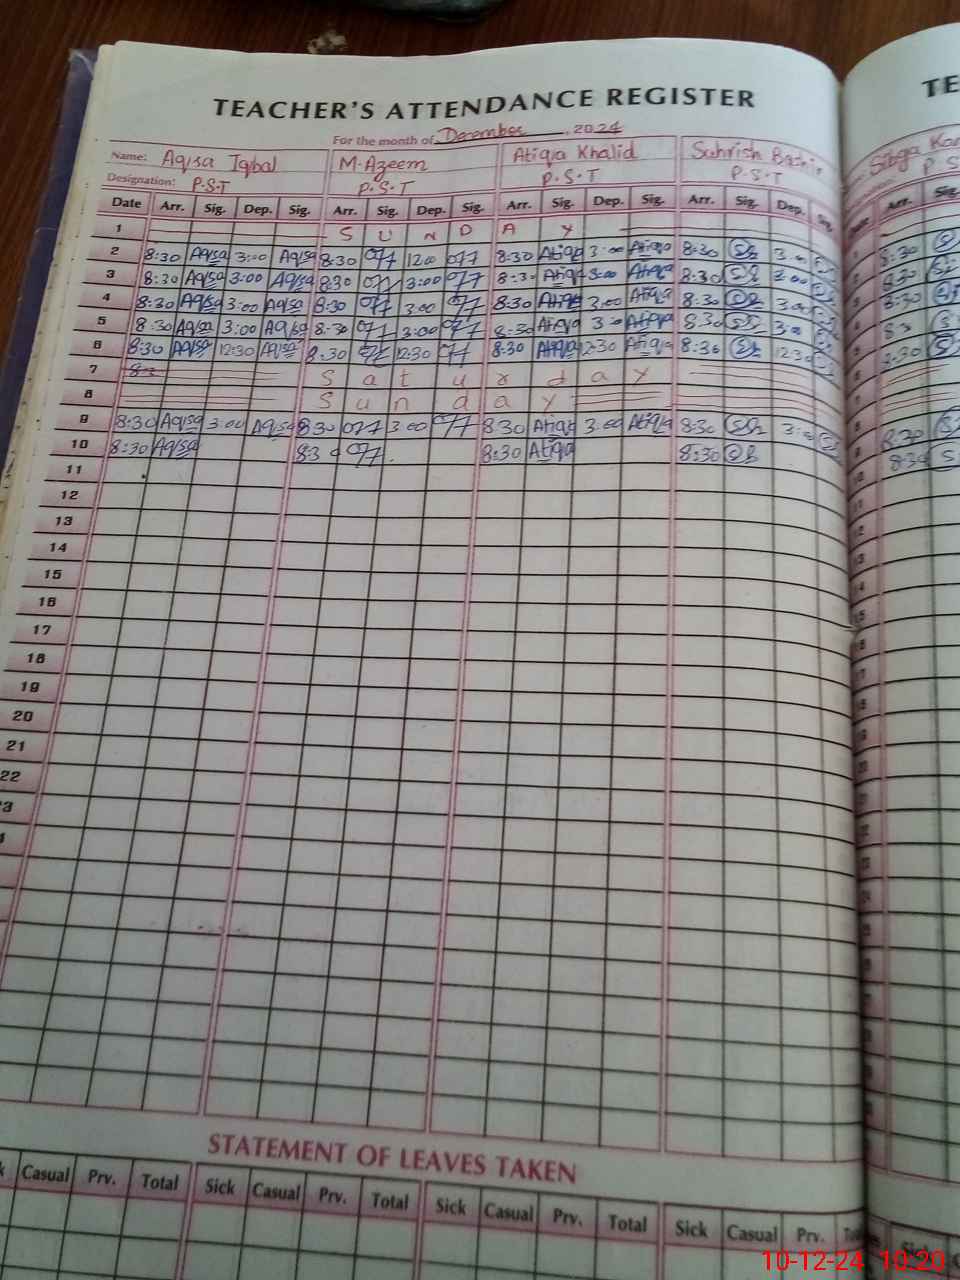 TEACHER'S ATTENDANCE REGISTER
For the month of December, 2024
Name: Aqisa Iqbal M. Azeem Atiqia Khalid Suhrish Bashir
Designation: P.S.T P.S.T P.S.T P.S.T
Date Arr. Sig. Dep. Sig. Arr. Sig. Dep. Sig. Arr. Sig. Dep. Sig. Arr. Sig. Dep. Sig.
1 S U N D A Y
2 8:30 Aqisa 3:00 Aqisa 8:30 1200 8:30 Atiqa 3:00 Atiqa 8:30 3:00
3 8:30 Aqisa 3:00 Aqisa 8:30 3:00 8:30 Atiqa 3:00 Atiqa 8:30 3:00
4 8:30 Aqisa 3:00 Aqisa 8:30 3:00 8:30 Atiqa 3:00 Atiqa 8:30 3:00
5 8:30 Aqisa 3:00 Aqisa 8:30 3:00 8:30 Atiqa 3:00 Atiqa 8:30 3:00
6 8:30 Aqisa 12:30 Aqisa 8:30 12:30 8:30 Atiqa 12:30 Atiqa 8:30 12:30
7 S a t u r d a y
8 S u n d a y
9 8:30 Aqisa 3:00 Aqisa 8:30 3:00 8:30 Atiqa 3:00 Atiqa 8:30 3:00
10 8:30 Aqisa 8:30 8:30 Atiqa 8:30
11
12
13
14
15
16
17
18
19
20
21
22
STATEMENT OF LEAVES TAKEN
Casual Prv. Total Sick Casual Prv. Total Sick Casual Prv. Total Sick Casual Prv.
10-12-24 10:20